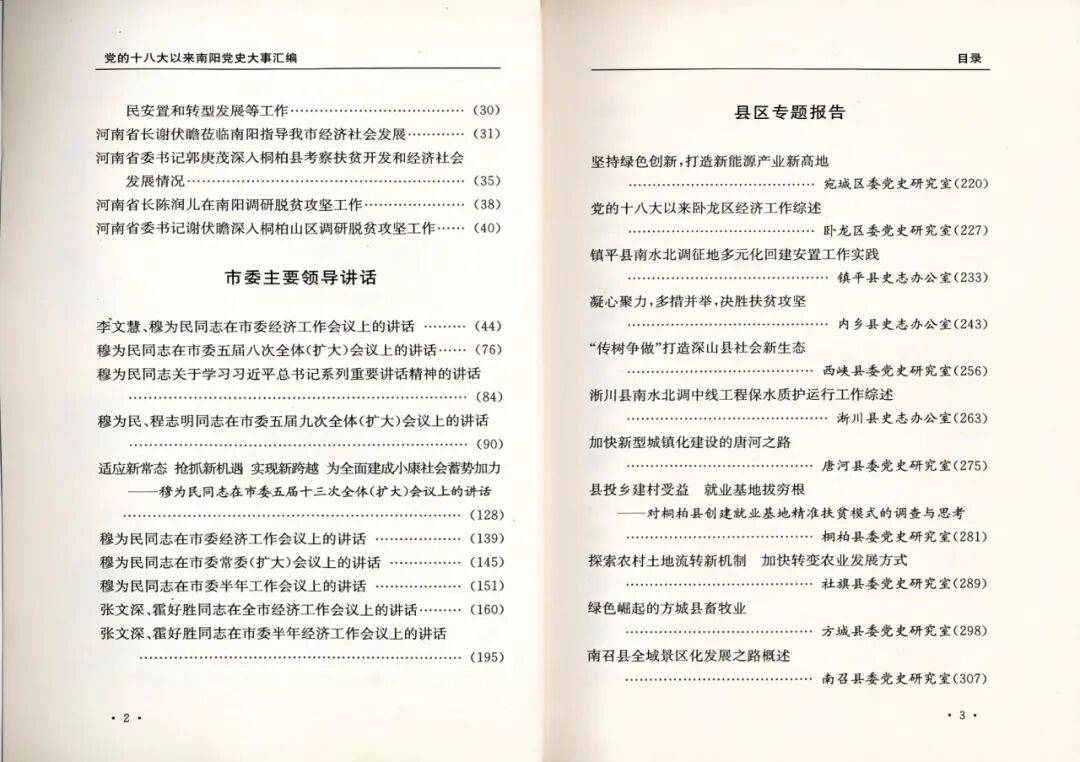 党的十八大以来南阳党史大事汇编
民安置和转型发展等工作……………………………(30)
河南省长谢伏瞻莅临南阳指导我市经济社会发展…………(31)
河南省委书记郭庚茂深入桐柏县考察扶贫开发和经济社会
发展情况………………………………………………(35)
河南省长陈润儿在南阳调研脱贫攻坚工作………………(38)
河南省委书记谢伏瞻深入桐柏山区调研脱贫攻坚工作……(40)
市委主要领导讲话
李文慧、穆为民同志在市委经济工作会议上的讲话………(44)
穆为民同志在市委五届八次全体(扩大)会议上的讲话……(76)
穆为民同志关于学习习近平总书记系列重要讲话精神的讲话
………………………………………………………(84)
穆为民、程志明同志在市委五届九次全体(扩大)会议上的讲话
………………………………………………………(90)
适应新常态 抢抓新机遇 实现新跨越 为全面建成小康社会蓄势加力
——穆为民同志在市委五届十三次全体(扩大)会议上的讲话
………………………………………………………(128)
穆为民同志在市委经济工作会议上的讲话………………(139)
穆为民同志在市委常委(扩大)会议上的讲话……………(145)
穆为民同志在市委半年工作会议上的讲话………………(151)
张文深、霍好胜同志在全市经济工作会议上的讲话………(160)
张文深、霍好胜同志在市委半年经济工作会议上的讲话
………………………………………………………(195)
· 2 ·
目录
县区专题报告
坚持绿色创新,打造新能源产业新高地
……………………………宛城区委党史研究室(220)
党的十八大以来卧龙区经济工作综述
……………………………卧龙区委党史研究室(227)
镇平县南水北调征地多元化回建安置工作实践
……………………………镇平县史志办公室(233)
凝心聚力,多措并举,决胜扶贫攻坚
……………………………内乡县史志办公室(243)
“传树争做”打造深山县社会新生态
……………………………西峡县委党史研究室(256)
淅川县南水北调中线工程保水质护运行工作综述
……………………………淅川县史志办公室(263)
加快新型城镇化建设的唐河之路
……………………………唐河县委党史研究室(275)
县投乡建村受益 就业基地拔穷根
——对桐柏县创建就业基地精准扶贫模式的调查与思考
……………………………桐柏县委党史研究室(281)
探索农村土地流转新机制 加快转变农业发展方式
……………………………社旗县委党史研究室(289)
绿色崛起的方城县畜牧业
……………………………方城县委党史研究室(298)
南召县全域景区化发展之路概述
……………………………南召县委党史研究室(307)
· 3 ·